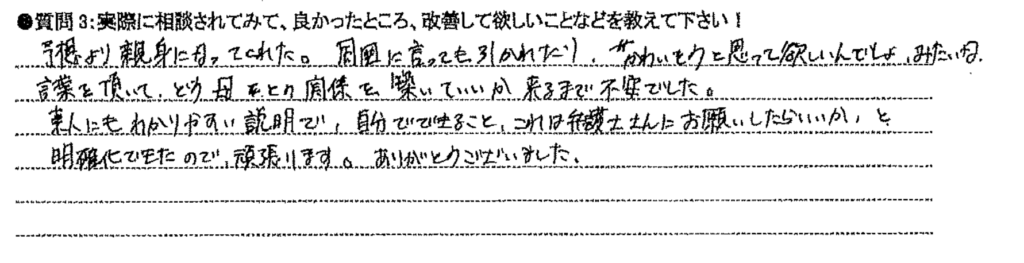 ●質問3:実際に相談されてみて、良かったところ、改善して欲しいことなどを教えて下さい!
予想より親身になってくれた。周囲に言っても引かれたり、"かわいそうと思って欲しいんでしょ、みたいな、
言葉を頂いて、どう母との関係を築いていいか来るまで不安でした。
素人にもわかりやすい説明で、自分でできること、これは弁護士さんにお願いしたらいいか、と
明確化できたので、頑張ります。ありがとうございました。